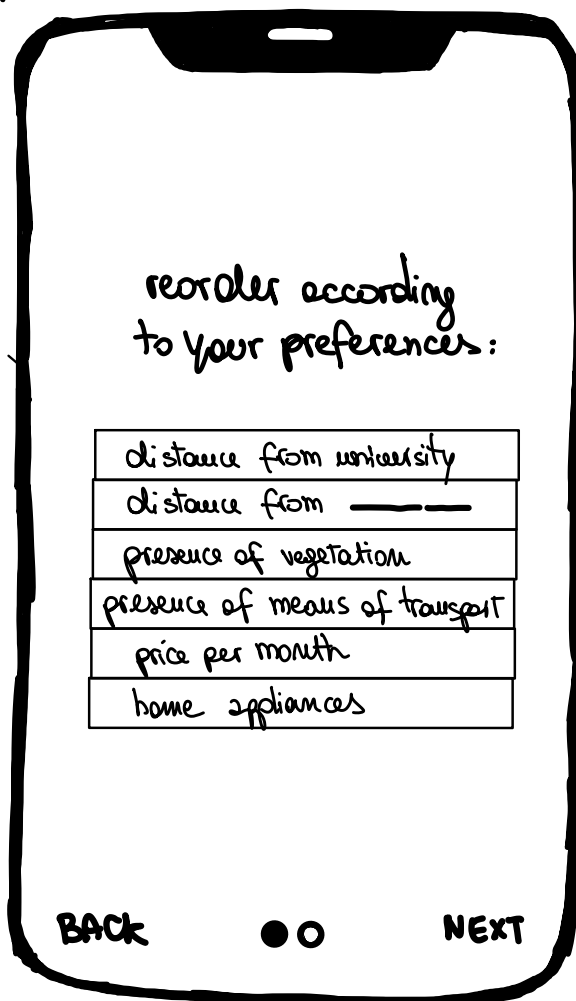 reorder according
to your preferences:
distance from university
distance from
presence of vegetation
presence of means of transport
price per month
home appliances
BACK
NEXT